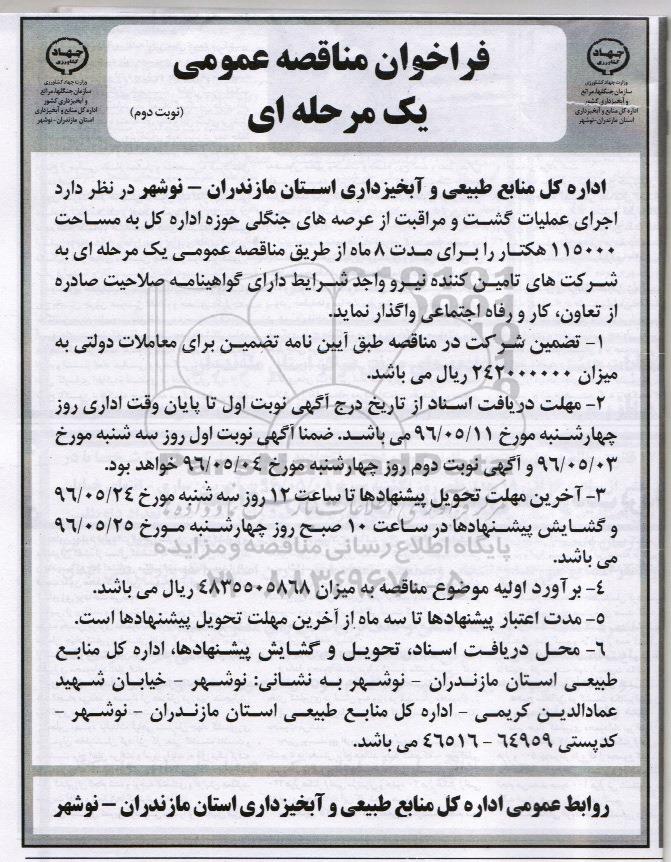 جهاد
کشاورزی
وزارت جهاد کشاورزی
سازمان جنگلها، مراتع
و آبخیزداری کشور
اداره کل منابع و آبخیزداری
استان مازندران - نوشهر
فراخوان مناقصه عمومی
یک مرحله ای
(نوبت دوم)
جهاد
کشاورزی
وزارت جهاد کشاورزی
سازمان جنگلها، مراتع
و آبخیزداری کشور
اداره کل منابع و آبخیزداری
استان مازندران - نوشهر
اداره کل منابع طبیعی و آبخیزداری استان مازندران – نوشهر در نظر دارد
اجرای عملیات گشت و مراقبت از عرصه های جنگلی حوزه اداره کل به مساحت
۱۱۵۰۰۰ هکتار را برای مدت ۸ ماه از طریق مناقصه عمومی یک مرحله ای به
شرکت های تامین کننده نیرو واجد شرایط دارای گواهینامه صلاحیت صادره
از تعاون، کار و رفاه اجتماعی واگذار نماید.
۱- تضمین شرکت در مناقصه طبق آیین نامه تضمین برای معاملات دولتی به
میزان ۲۴۲۰۰۰۰۰۰ ریال می باشد.
۲- مهلت دریافت اسناد از تاریخ درج آگهی نوبت اول تا پایان وقت اداری روز
چهارشنبه مورخ ۹۶/۰۵/۱۱ می باشد. ضمنا آگهی نوبت اول روز سه شنبه مورخ
۹۶/۰۵/۰۳ و آگهی نوبت دوم روز چهارشنبه مورخ ۹۶/۰۵/۰۴ خواهد بود.
۳- آخرین مهلت تحویل پیشنهادها تا ساعت ۱۲ روز سه شنبه مورخ ۹۶/۰۵/۲۴
و گشایش پیشنهادها در ساعت ۱۰ صبح روز چهارشنبه مورخ ۹۶/۰۵/۲۵
می باشد.
پایگاه اطلاع رسانی مناقصه و مزایده
۴- برآورد اولیه موضوع مناقصه به میزان ۴۸۳۵۵۰۵۸۶۸ ریال می باشد.
۵- مدت اعتبار پیشنهادها تا سه ماه از آخرین مهلت تحویل پیشنهادها است.
۶- محل دریافت اسناد، تحویل و گشایش پیشنهادها، اداره کل منابع
طبیعی استان مازندران – نوشهر به نشانی: نوشهر – خیابان شهید
عمادالدین کریمی – اداره کل منابع طبیعی استان مازندران – نوشهر –
کدپستی ۶۴۹۵۹ – ۴۶۵۱۶ می باشد.
روابط عمومی اداره کل منابع طبیعی و آبخیزداری استان مازندران – نوشهر